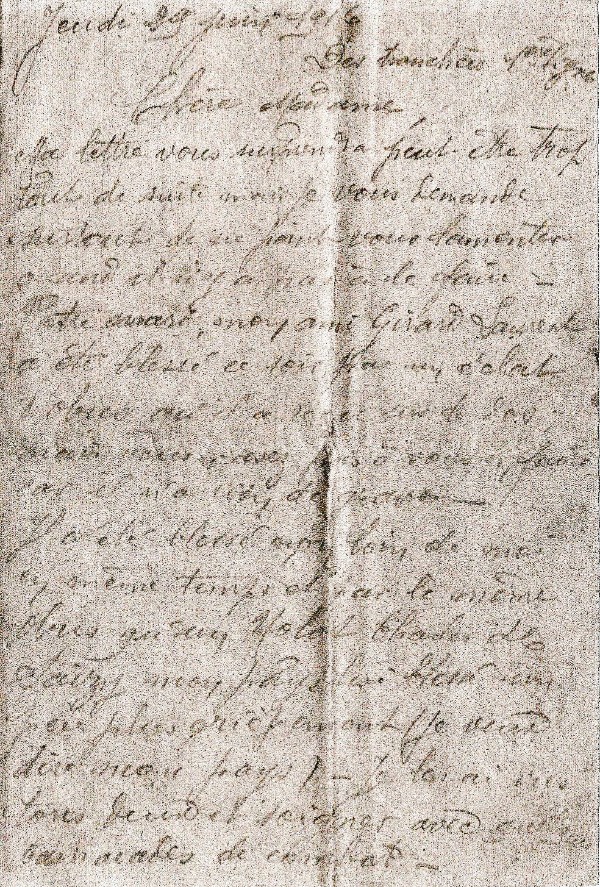 Jeudi 29 juin 1916
Des tranchées 1ère ligne
Chère Madame
Ma lettre vous surprendra peut-être trop
tout de suite mais je vous demande
surtout de ne point vous lamenter
quand il n'y a pas à le faire –
Votre mari, mon ami Girard Laurent
a été blessé ce soir par un éclat
d'obus qu'il a reçu dans le dos
mais vous n'avez pas à vous en faire
car il n'a rien de grave –
Il a été blessé non loin de moi
en même temps et par le même
obus qu'un Charles de
mon pays lui blessé un
peu plus grièvement (je veux
dire mon pays) – Je les ai vus
tous deux et soignés avec
camarades de combat –